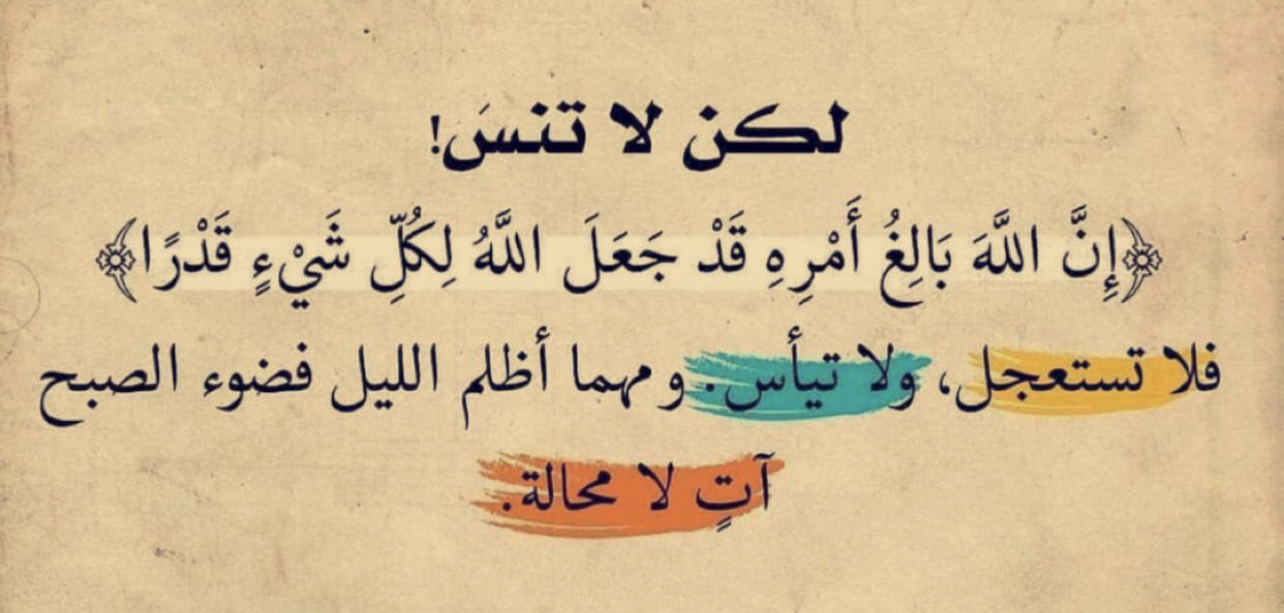 لكن لا تنسَ!
﴿إِنَّ اللَّهَ بَالِغُ أَمْرِهِ قَدْ جَعَلَ اللَّهُ لِكُلِّ شَيْءٍ قَدْرًا﴾
فلا تستعجل، ولا تيأس. ومهما أظلم الليل فضوء الصبح
آتٍ لا محالة.